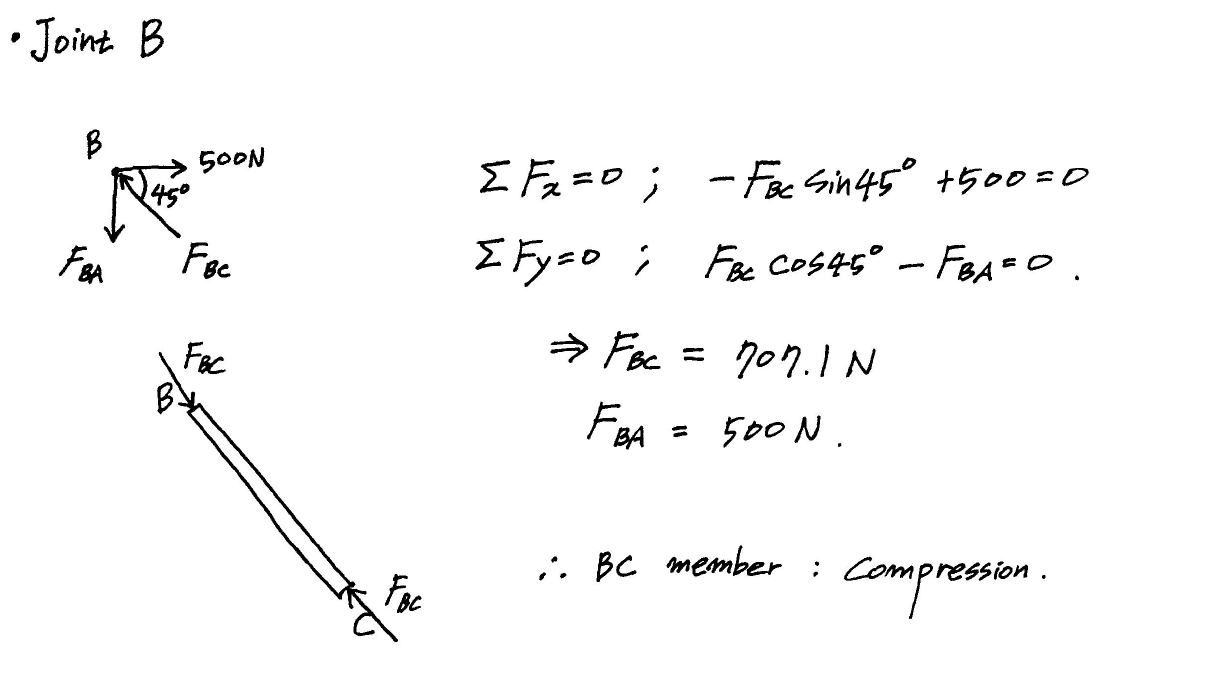 • Joint B
B
500N
45°
F_BA
F_BC
ΣFx=0 ; -F_BC sin45° +500=0
ΣFy=0 ; F_BC cos45° - F_BA=0.
⇒ F_BC = 707.1 N
F_BA = 500N.
F_BC
B
F_BC
C
∴ BC member : Compression.